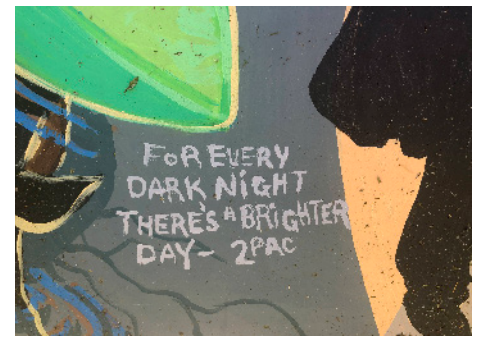 FOR EVERY
DARK NIGHT
THERE'S A BRIGHTER
DAY- 2PAC